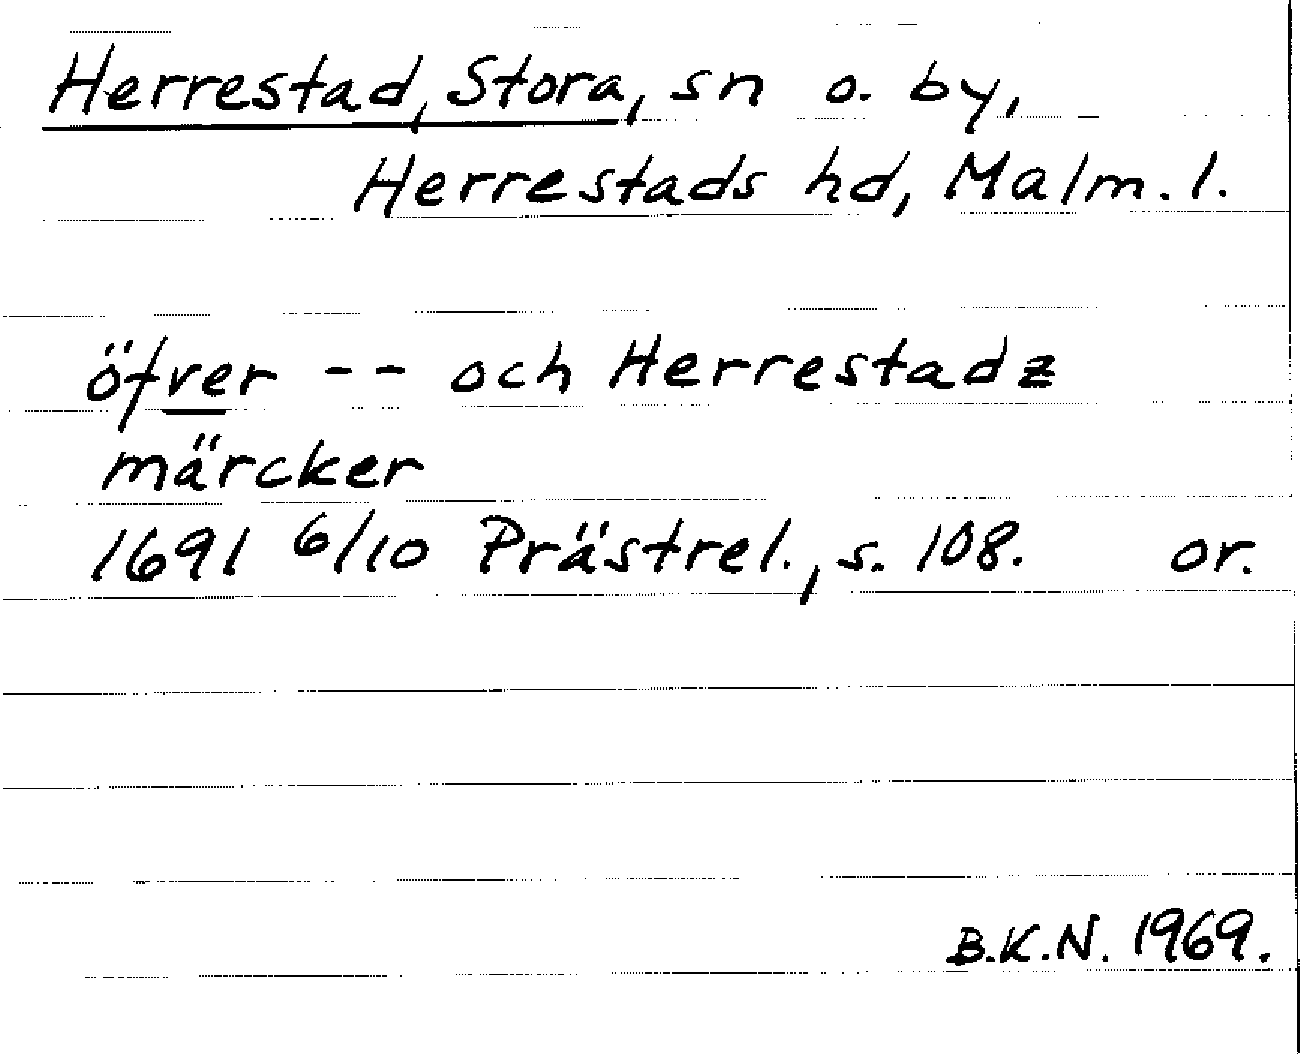 Herrestad, Stora, sn o. by,
Herrestads hd, Malm. l.
öfver -- och Herrestadz
märcker
1691 6/10 Prästrel., s. 108. or.
B.K.N. 1969.